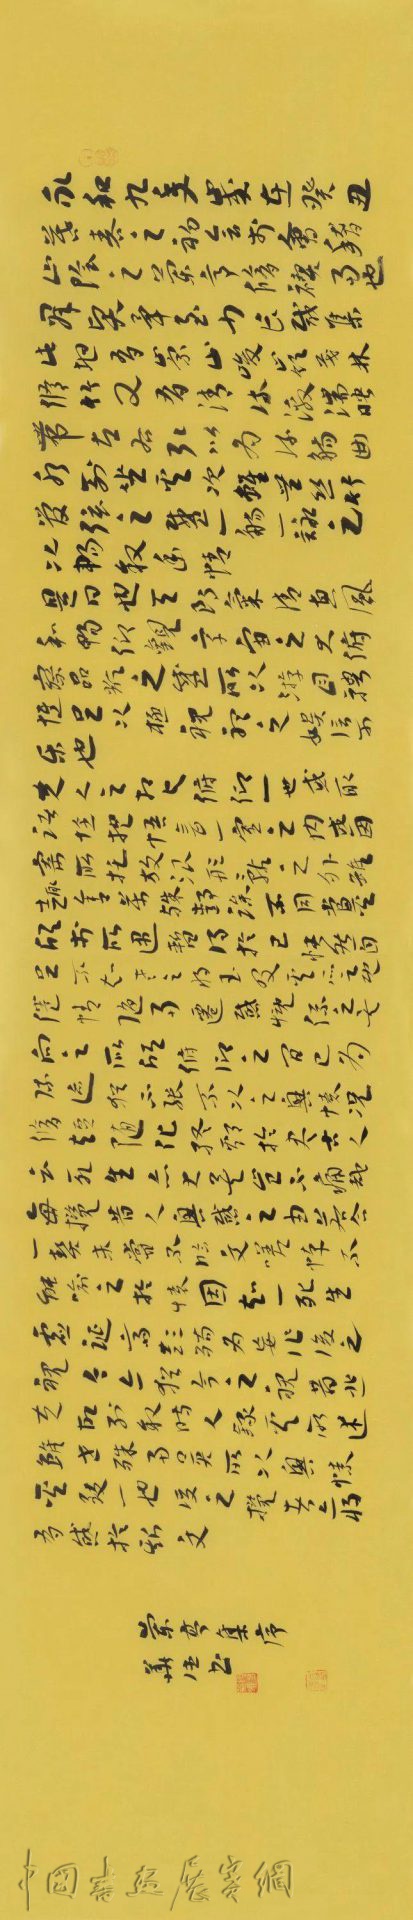 永和九年歲在癸丑
暮春之初會于會稽
山陰之蘭亭修禊事也
羣賢畢至少長咸集
此地有崇山峻嶺茂林
修竹又有清流激湍映
帶左右引以為流觴曲
水列坐其次雖無絲竹
管弦之盛一觴一詠亦足
以暢敘幽情
是日也天朗氣清惠風
和暢仰觀宇宙之大俯
察品類之盛所以游目騁
懷足以極視聽之娛信可
樂也
夫人之相與俯仰一世或取
諸懷抱悟言一室之內或因
寄所託放浪形骸之外雖
趣舍萬殊靜躁不同當其
欣於所遇暫得於己快然自
足不知老之將至及其所之既
倦情隨事遷感慨係之矣
向之所欣俯仰之間已為
陳迹猶不能不以之興懷況
修短隨化終期於盡古人
云死生亦大矣豈不痛哉
每攬昔人興感之由若合
一契未嘗不臨文嗟悼不
能喻之於懷固知一死生
為虛誕齊彭殤為妄作後之
視今亦猶今之視昔悲
夫故列敘時人錄其所述
雖世殊事異所以興懷
其致一也後之攬者亦將
有感於斯文
蘭亭集序
書
中国書画展賽網